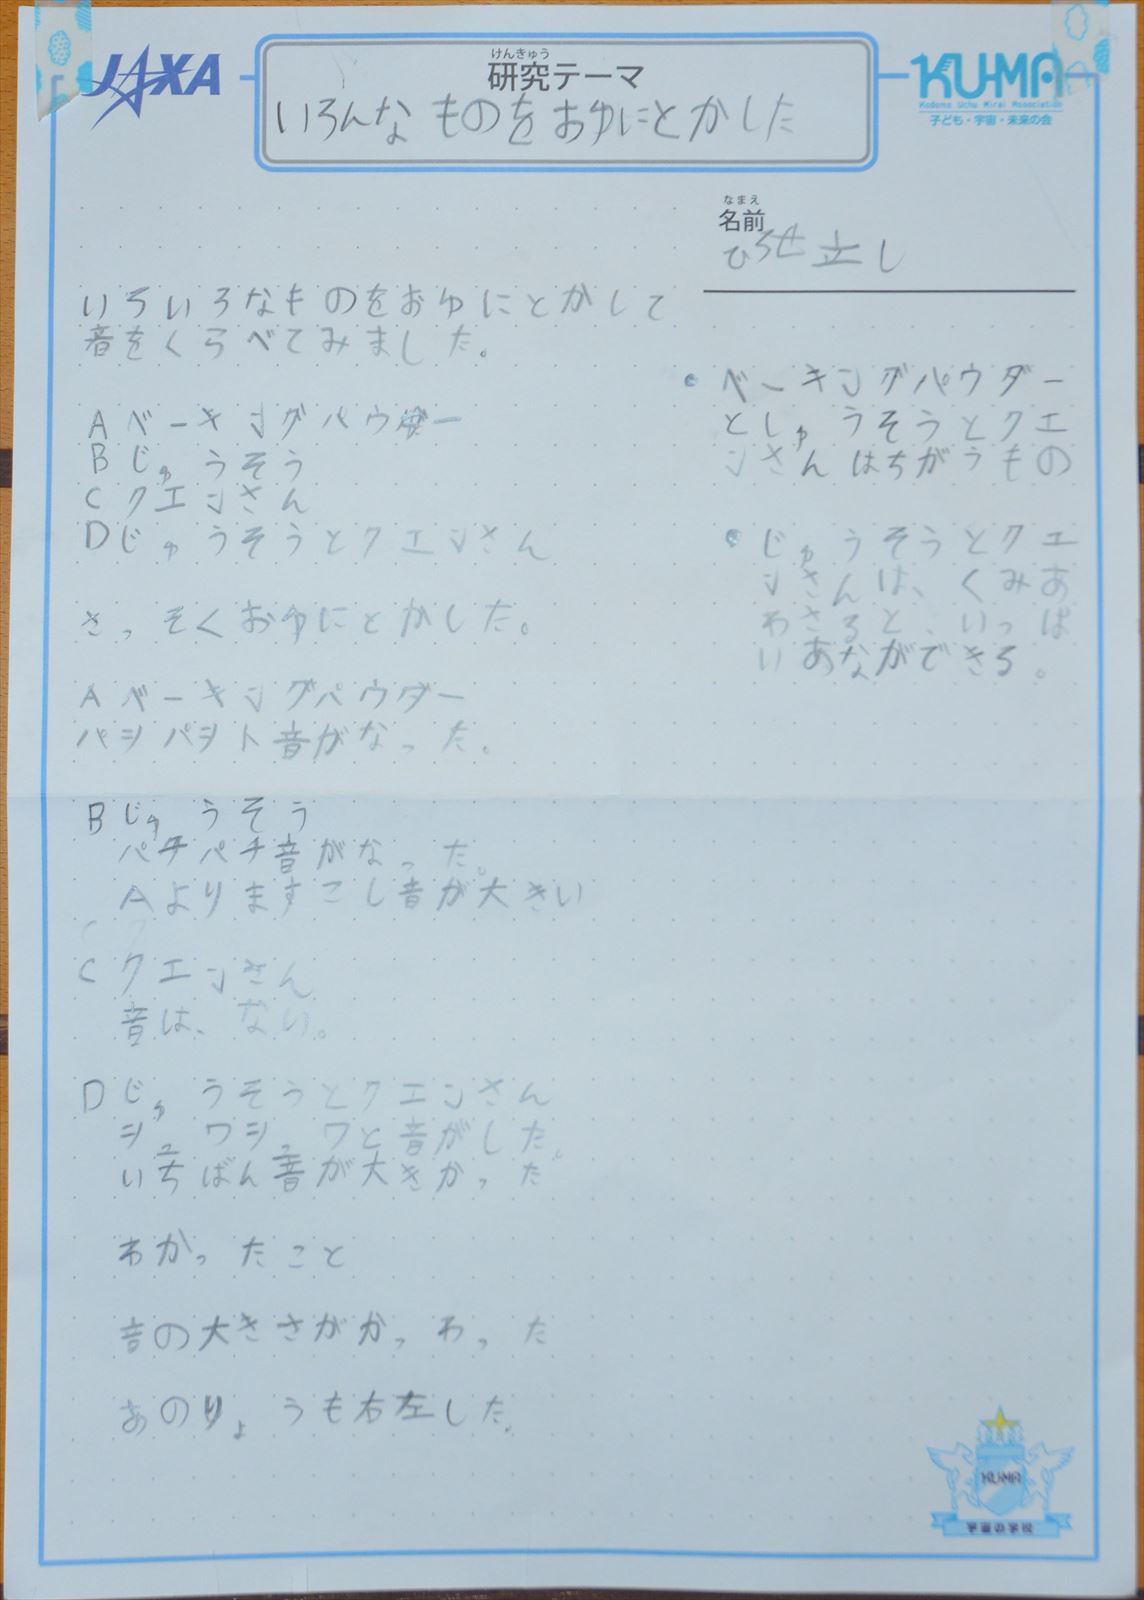 JAXA
けんきゅう
研究テーマ
いろんなものをおゆにとかした
KU-MA
Kodomo Uchu Mirai Association
子ども・宇宙・未来の会
なまえ
名前
いろいろなものをおゆにとかして
音をくらべてみました。
A ベーキングパウダー
B じゅうそう
C クエンさん
D じゅうそうとクエンさん
さっそくおゆにとかした。
A ベーキングパウダー
パシパシト音がなった。
B じゅうそう
パチパチ音がなった。
Aよりますこし音が大きい
C クエンさん
音は、ない。
D じゅうそうとクエンさん
シュワシュワと音がした。
いちばん音が大きかった
わかったこと
音の大きさがかっわった
あのりょうも右左した。
・ベーキングパウダー
としゅうそうとクエ
ンさんはちがうもの
・じゅうそうとクエ
ンさんは、くみあ
わさると、いっぱ
いあながができる。
KU-MA